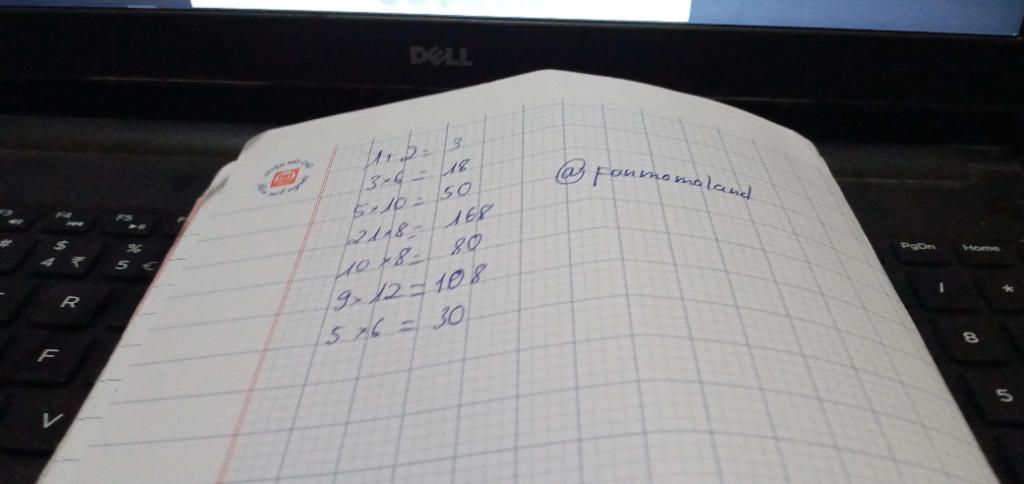 DELL
1+2= 3
3×6 = 18
5×10 = 50
21×8= 168
10×8= 80
9×12=108
5×6 = 30
@fanmomoland
F4
F5
$
4 ₹
%
5 €
R
F
V
PgDn
Home
*
8
5